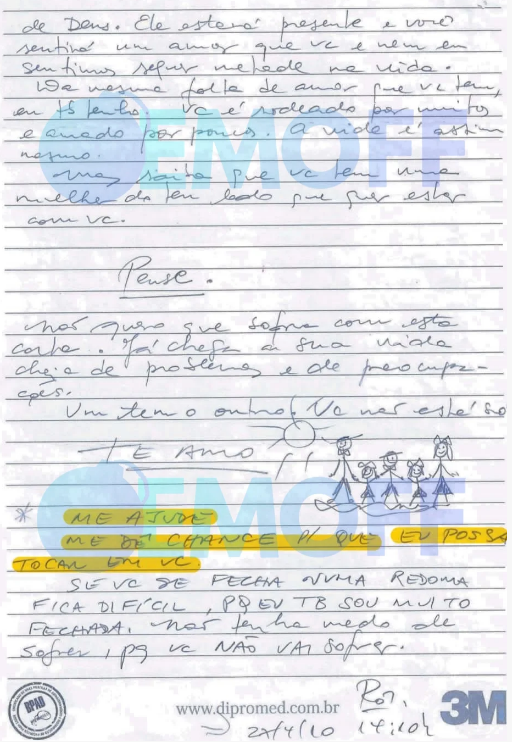 de Deus. Ele estará presente e você
sentirá um amor que vc e nem eu
sentimos sequer metade na vida.
Da mesma falta de amor que vc tem,
eu tb tenho. Vc é rodeado por muitos
e amado por poucos. A vida é assim
mesmo.
Mas saiba que vc tem uma
mulher do teu lado que quer estar
com vc.
Pense.
Não quero que sofra com esta
carta. Já chega a sua vida
cheia de problemas e de preocupa-
ções.
Um tem o outro! Vc não está só
TE AMO!!
* ME AJUDE
ME DÊ CHANCE P/ QUE EU POSSA
TOCAR EM VC
SE VC SE FECHA NUMA REDOMA
FICA DIFÍCIL, PQ EU TB SOU MUITO
FECHADA. Não tenha medo de
sofrer, pq vc NÃO VAI sofrer.
www.dipromed.com.br
3M
27/4/10 14:10h
EMOFF
EMOFF